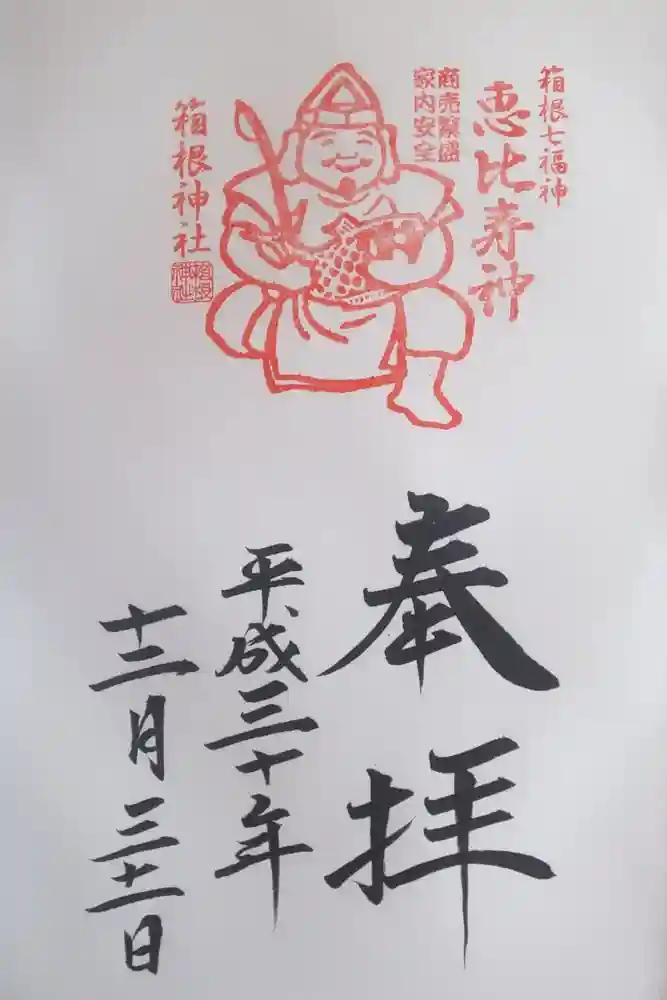 箱根七福神
恵比寿神
商売繁盛
家内安全
箱根神社
箱根神社
奉拝
平成三十年
十二月三十一日